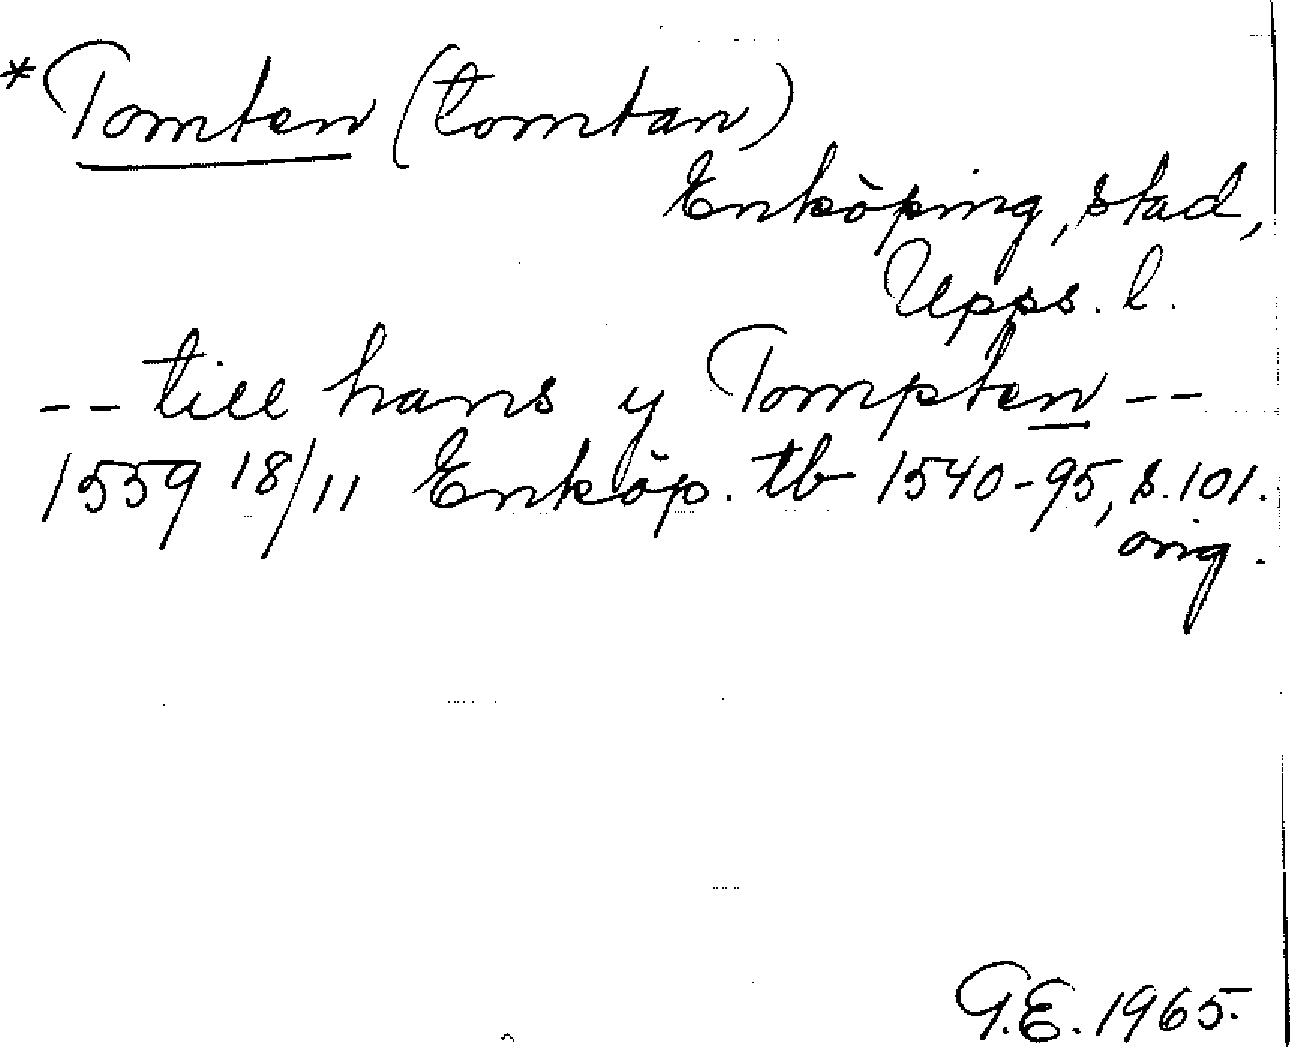 *Tomten (tomtan)
Enköping, stad,
Upps. l.
-- till hans y Tompten --
1559 18/11 Enköp. tb 1540-95, s. 101.
orig.
G.E. 1965.